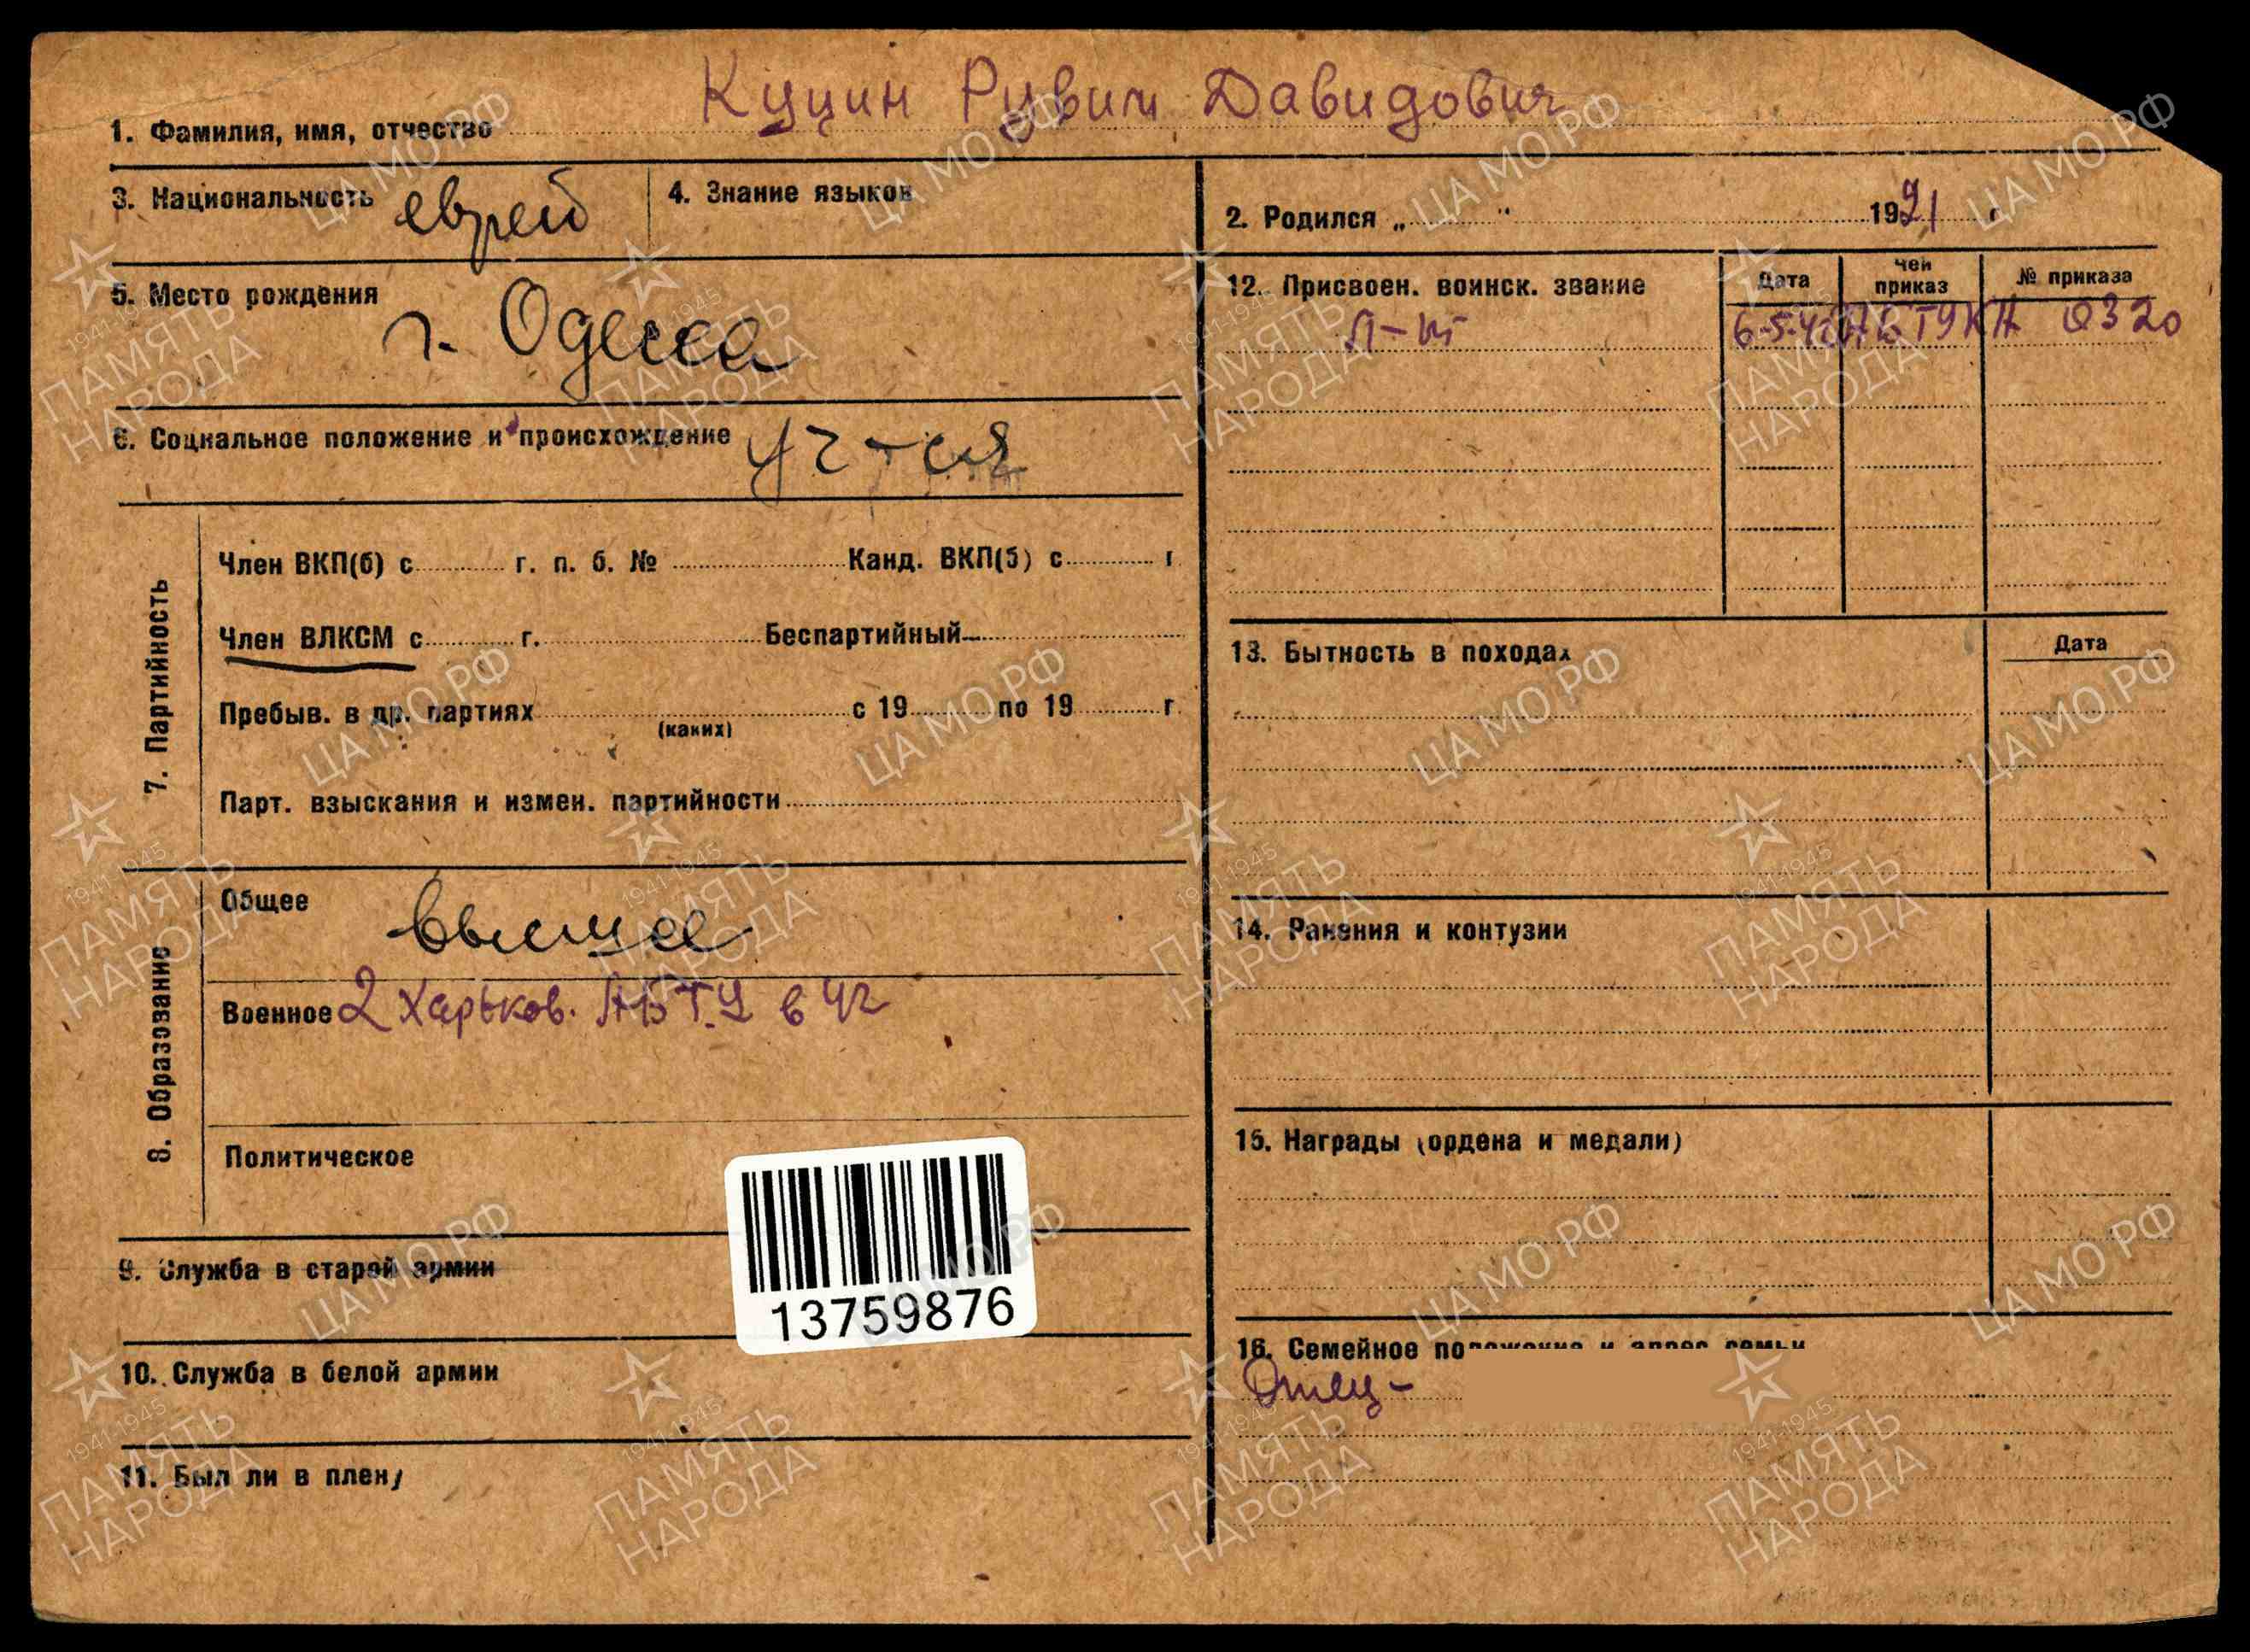 1. Фамилия, имя, отчество Куцин Рувим Давидович
3. Национальность еврей
4. Знание языков
2. Родился „ " 1921 г
5. Место рождения г. Одесса
6. Социальное положение и происхождение уч-ся
7. Партийность
Член ВКП(б) с г. п. б. № Канд. ВКП(б) с г
Член ВЛКСМ с г. Беспартийный
Пребыв. в др. партиях с 19 по 19 г.
(каких)
Парт. взыскания и измен. партийности
8. Образование
Общее высшее
Военное 2 Харьков. АБТУ в 42
Политическое
9. Служба в старой армии
10. Служба в белой армии
11. Был ли в плену
13759876
12. Присвоен. воинск. звание Дата Чей приказ № приказа
Л-нт 6-5-42 0320
13. Бытность в походах Дата
14. Ранения и контузии
15. Награды (ордена и медали)
16. Семейное положение и адрес семьи
Отец -
ЦА МО РФ
1941-1945
ПАМЯТЬ
НАРОДА